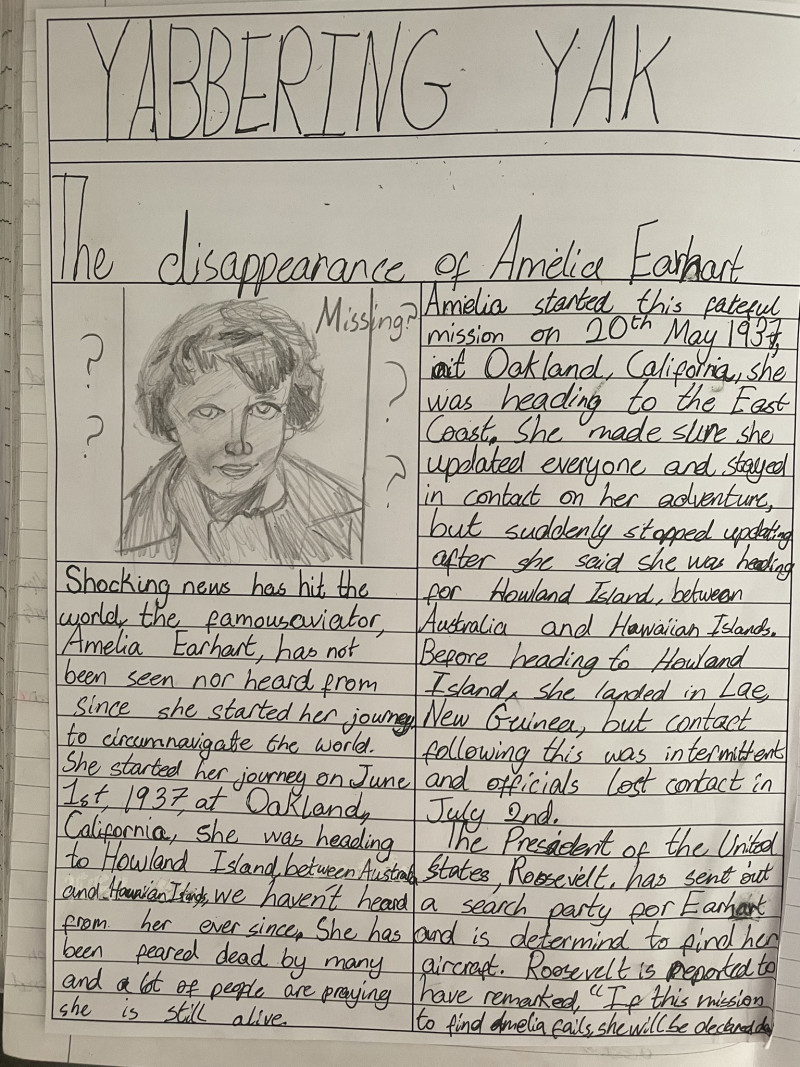 YABBERING YAK
The disappearance of Amelia Earhart
Missing?
? ?
? ?
Shocking news has hit the
world, the famous aviator,
Amelia Earhart, has not
been seen nor heard from
since she started her journey
to circumnavigate the world.
She started her journey on June
1st, 1937, at Oakland,
California, she was heading
to Howland Island, between Australia
and Hawaiian Islands, we haven't heard
from her ever since. She has
been feared dead by many
and a lot of people are praying
she is still alive.
Amelia started this fateful
mission on 20th May 1937,
at Oakland, California, she
was heading to the East
Coast. She made sure she
updated everyone and stayed
in contact on her adventure,
but suddenly stopped updating
after she said she was heading
for Howland Island, between
Australia and Hawaiian Islands.
Before heading to Howland
Island, she landed in Lae,
New Guinea, but contact
following this was intermittent
and officials lost contact in
July 2nd.
The President of the United
States, Roosevelt, has sent out
a search party for Earhart
and is determind to find her
aircraft. Roosevelt is reported to
have remarked, "If this mission
to find Amelia fails, she will be declared